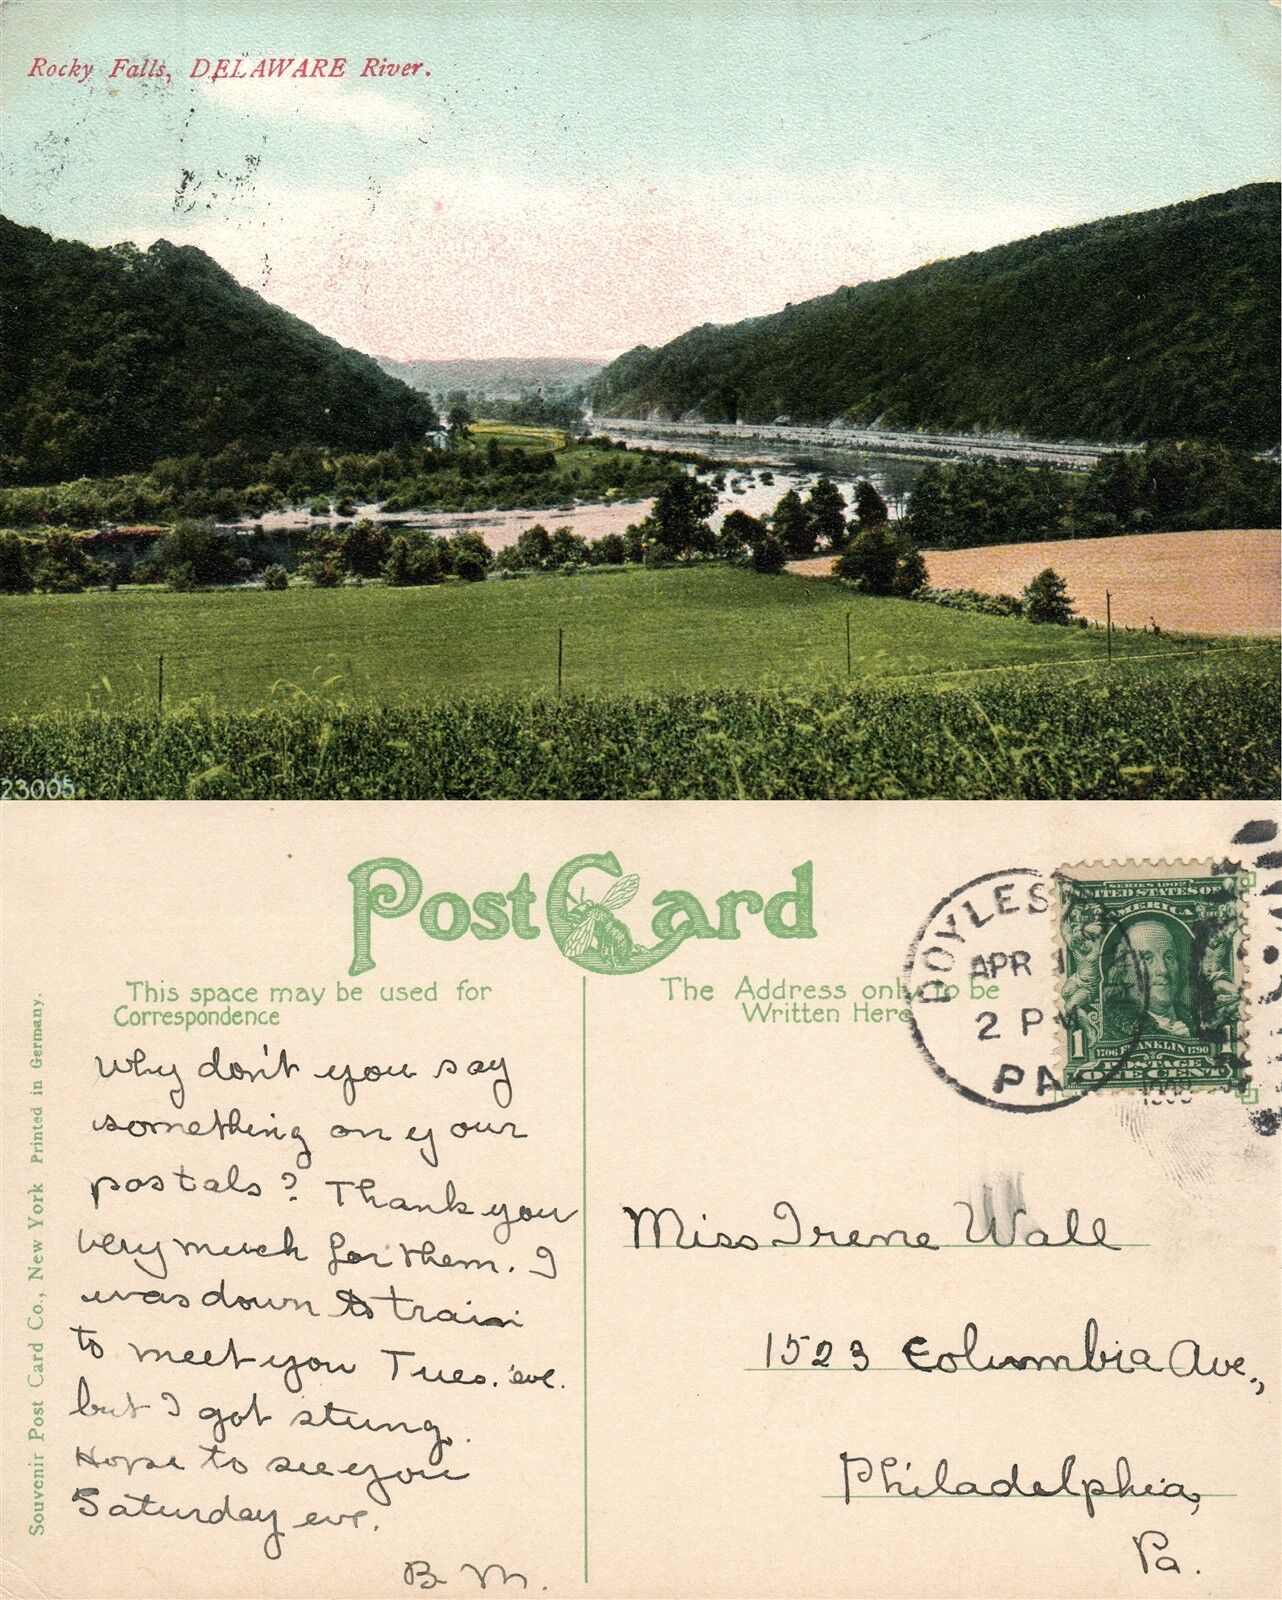 Rocky Falls, DELAWARE River.
23005
PostCard
This space may be used for
Correspondence
The Address only to be
Written Here
DOYLES
APR
2 PM
PA
SERIES 1902
UNITED STATES OF
AMERICA
1 1706 FRANKLIN 1790 1
POSTAGE
ONE CENT
1908
Souvenir Post Card Co., New York Printed in Germany.
Why don't you say
something on your
postals? Thank you
very much for them. I
was down to train
to meet you Tues. eve.
but I got stung.
Hope to see you
Saturday eve.
B. M.
Miss Irene Wall
1523 Columbia Ave.,
Philadelphia,
Pa.